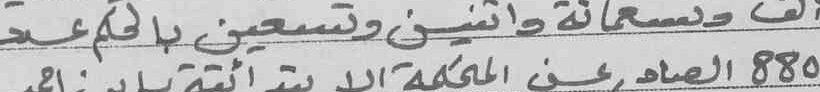 ألف وتسعمائة واثنين وتسعين بالحكم عدد
880 الصادر عن المحكمة الابتدائية